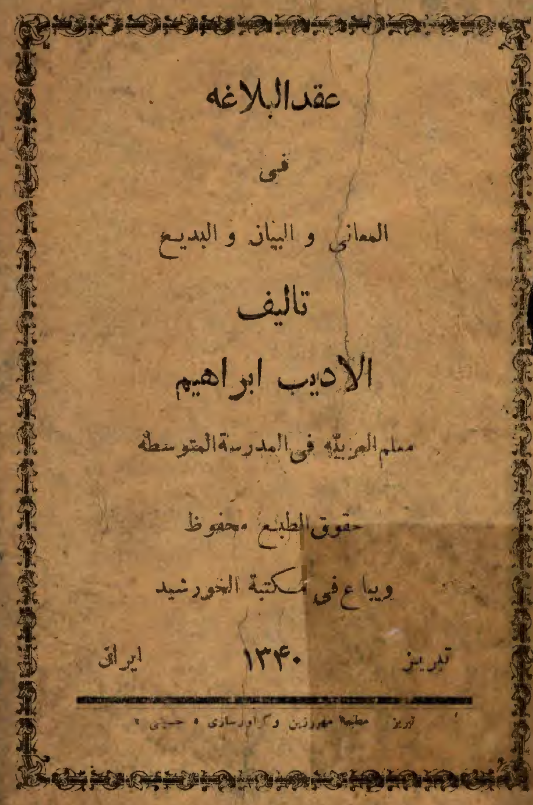 عقد البلاغه
فی
المعانی و البیان و البدیع
تالیف
الادیب ابراهیم
معلم العربیّه فی المدرسة المتوسطه
حقوق الطبع محفوظ
ویباع فی مکتبة الخورشید
تبریز ۱۳۴۰ ایران
تبریز مطبعهٔ مهرزین و گراورسازی « حسینی »